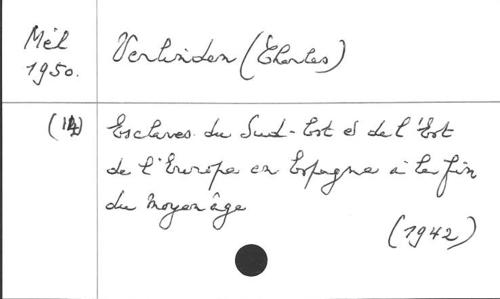 Mél
1950.
Verlinden (Charles)
(14)
Esclaves du Sud-Est et de l'Est
de l'Europe en Espagne à la fin
du moyen âge
(1942)